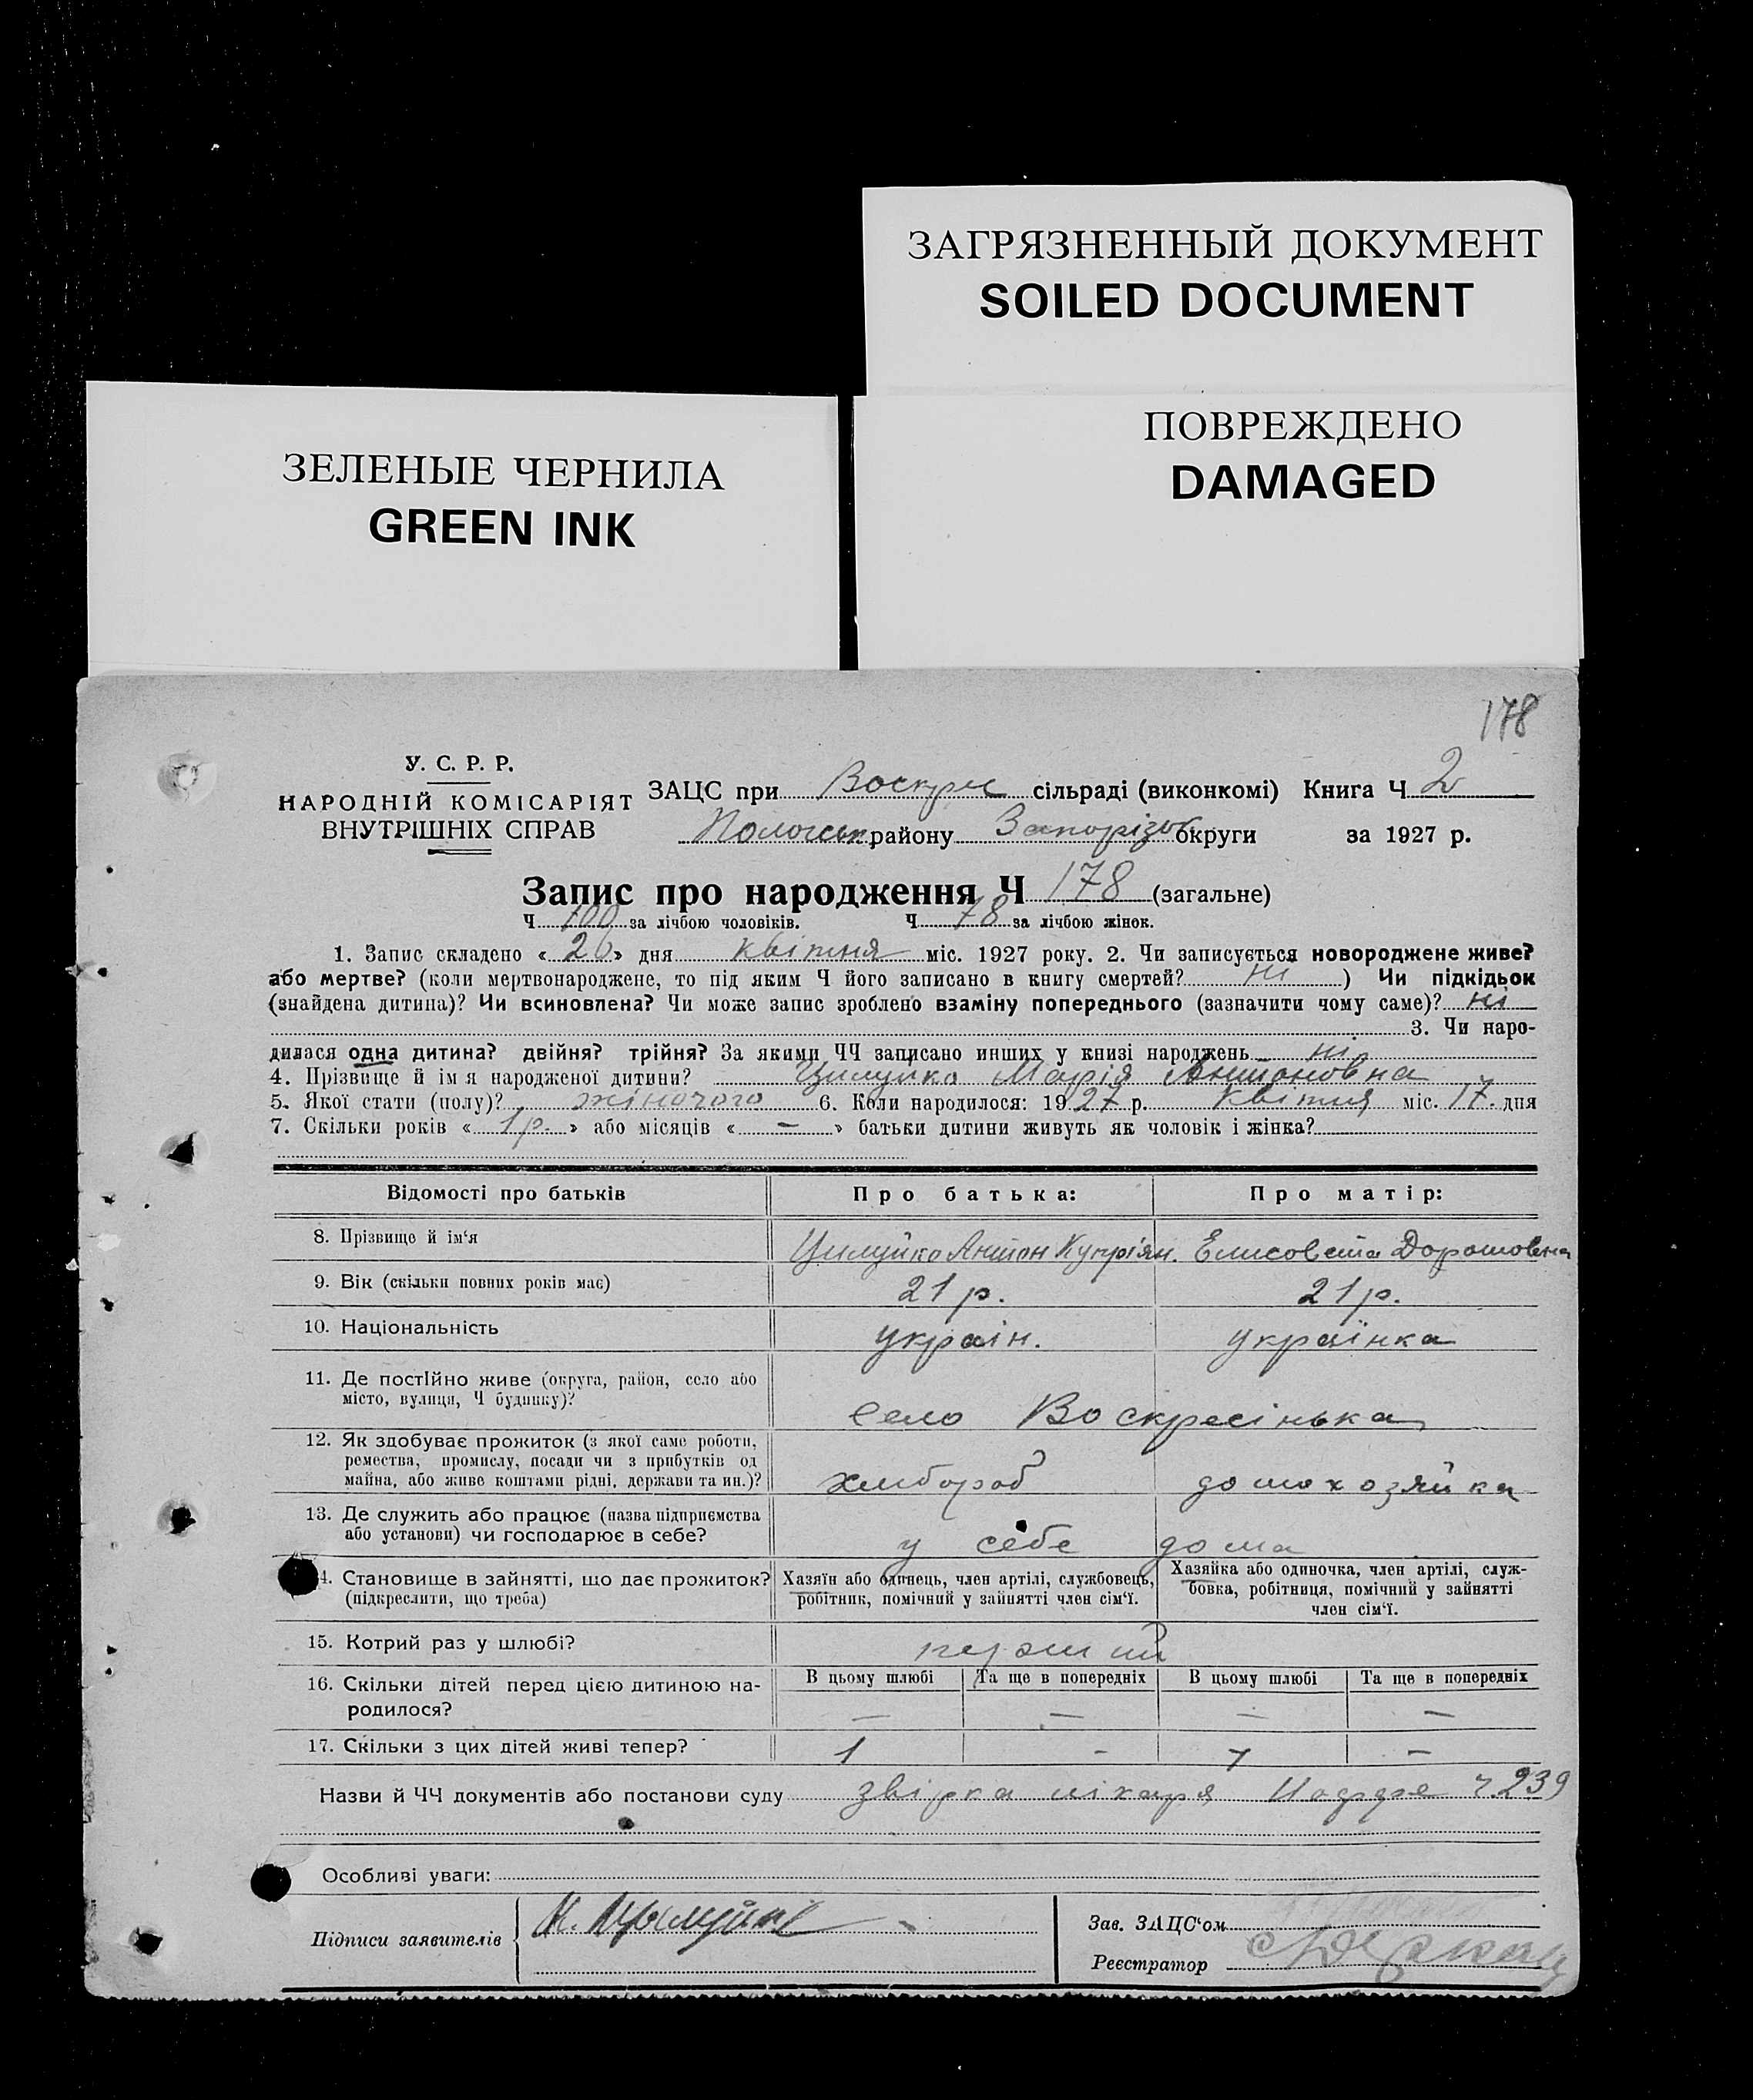 ЗАГРЯЗНЕННЫЙ ДОКУМЕНТ
SOILED DOCUMENT
ПОВРЕЖДЕНО
DAMAGED
ЗЕЛЕНЫЕ ЧЕРНИЛА
GREEN INK
178
У. С. Р. Р.
НАРОДНІЙ КОМІСАРІЯТ
ВНУТРІШНІХ СПРАВ
ЗАЦС при Воскрес сільраді (виконкомі) Книга Ч 2
Пологськ району Запорізьк округи за 1927 р.
Запис про народження Ч 178 (загальне)
Ч 100 за лічбою чоловіків. Ч 78 за лічбою жінок.
1. Запис складено « 26 » дня квітня міс. 1927 року. 2. Чи записується новороджене живе?
або мертве? (коли мертвонароджене, то під яким Ч його записано в книгу смертей? ні ) Чи підкідьок
(знайдена дитина)? Чи всиновлена? Чи може запис зроблено взаміну попереднього (зазначити чому саме)? ні
3. Чи наро-
дилася одна дитина? двійня? трійня? За якими ЧЧ записано инших у книзі народжень ні
4. Прізвище й ім я народженої дитини? Цилуйко Марія Антоновна
5. Якої стати (полу)? жіночого 6. Коли народилося: 1927 р. квітня міс. 17. дня
7. Скільки років « 1 р. » або місяців « – » батьки дитини живуть як чоловік і жінка?
Відомості про батьків Про батька: Про матір:
8. Прізвище й ім'я Цилуйко Антон Купріян. Елисовета Дорошовена
9. Вік (скільки повних років має) 21 р. 21 р.
10. Національність украін. украінка
11. Де постійно живе (округа, район, село або
місто, вулиця, Ч будинку)? село Воскресінька
12. Як здобуває прожиток (з якої саме роботи,
ремества, промислу, посади чи з прибутків од
майна, або живе коштами рідні, держави та ин.)? хлибороб домохозяйка
13. Де служить або працює (назва підприємства
або установи) чи господарює в себе? у себе дома
4. Становище в зайнятті, що дає прожиток?
(підкреслити, що треба)
Хазяїн або одинець, член артілі, службовець,
робітник, помічний у зайнятті член сім'ї.
Хазяйка або одиночка, член артілі, служ-
бовка, робітниця, помічний у зайнятті
член сім'ї.
15. Котрий раз у шлюбі? перший
16. Скільки дітей перед цією дитиною на-
родилося?
В цьому шлюбі Та ще в попередніх В цьому шлюбі Та ще в попередніх
– – – –
17. Скільки з цих дітей живі тепер? 1 – 1 –
Назви й ЧЧ документів або постанови суду звірка ліхаря ч 239
Особливі уваги:
Підписи заявителів
Зав. ЗАЦС'ом
Реєстратор